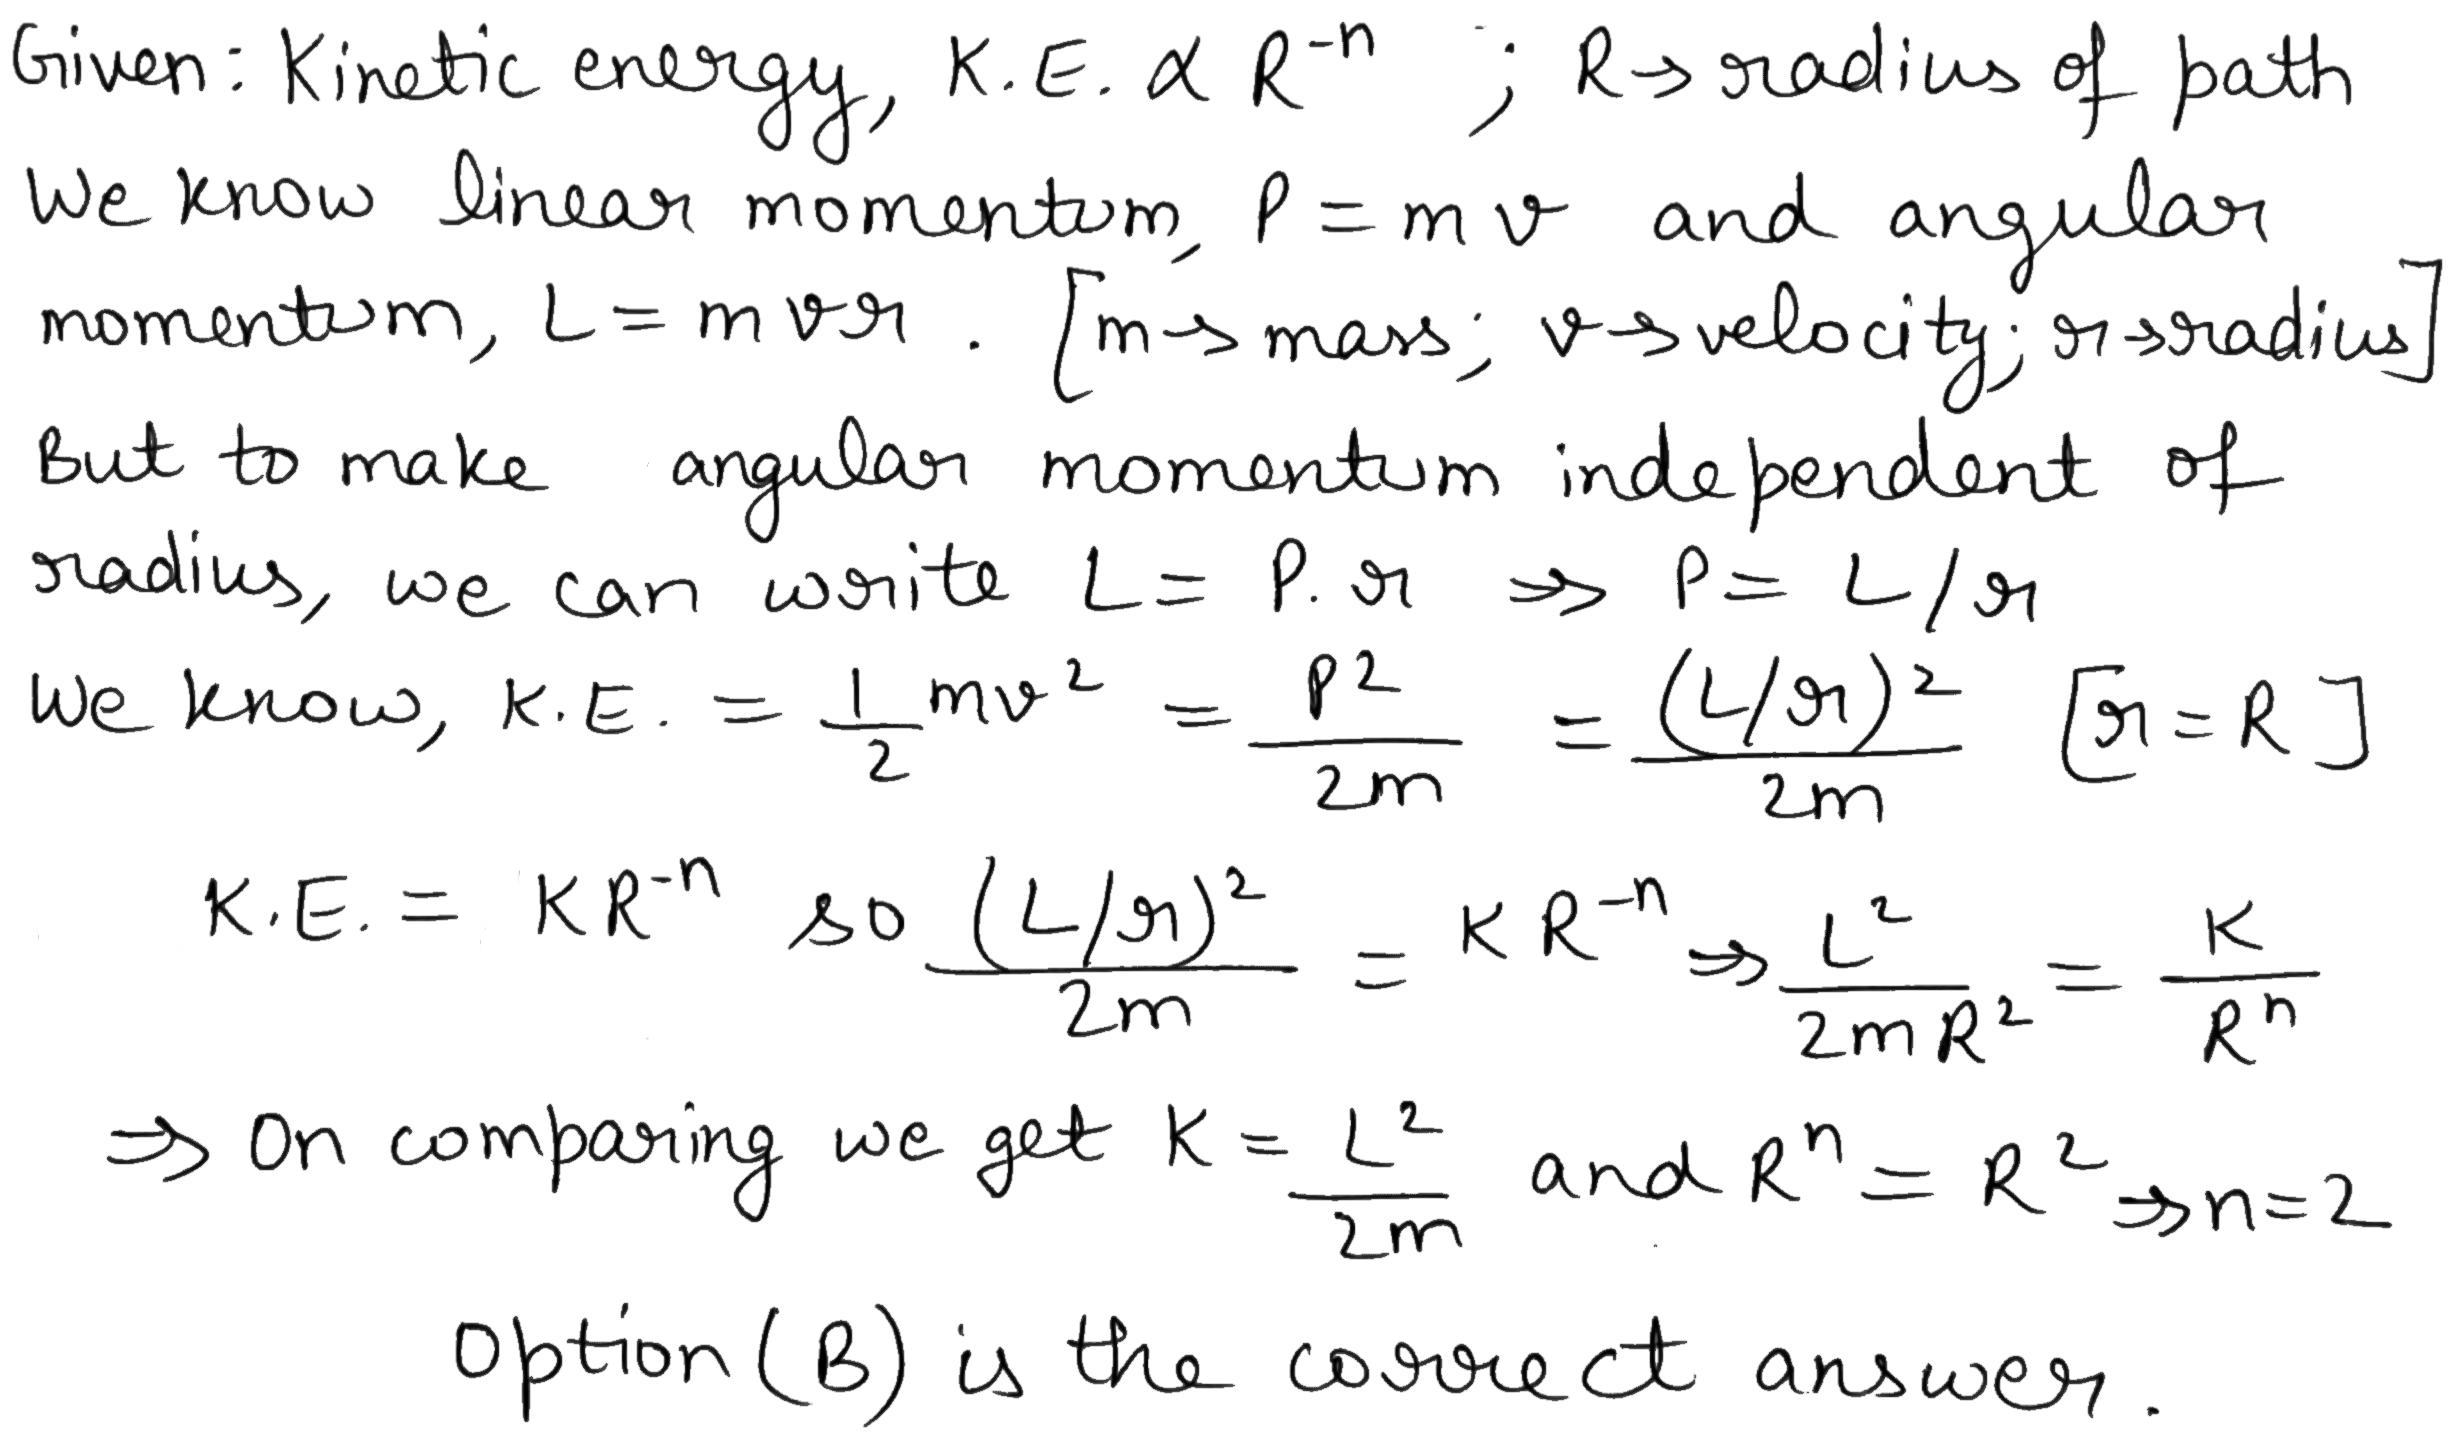 Given: Kinetic energy, K.E. α R⁻ⁿ ; R → radius of path
We know linear momentum, P = mv and angular
momentum, L = mvr. [m → mass; v → velocity; r → radius]
But to make angular momentum independent of
radius, we can write L = P.r ⇒ P = L/r
We know, K.E. = 1/2 mv² = P²/2m = (L/r)²/2m [r = R]
K.E. = KR⁻ⁿ so (L/r)²/2m = KR⁻ⁿ ⇒ L²/2mR² = K/Rⁿ
⇒ On comparing we get K = L²/2m and Rⁿ = R² ⇒ n=2
Option (B) is the correct answer.